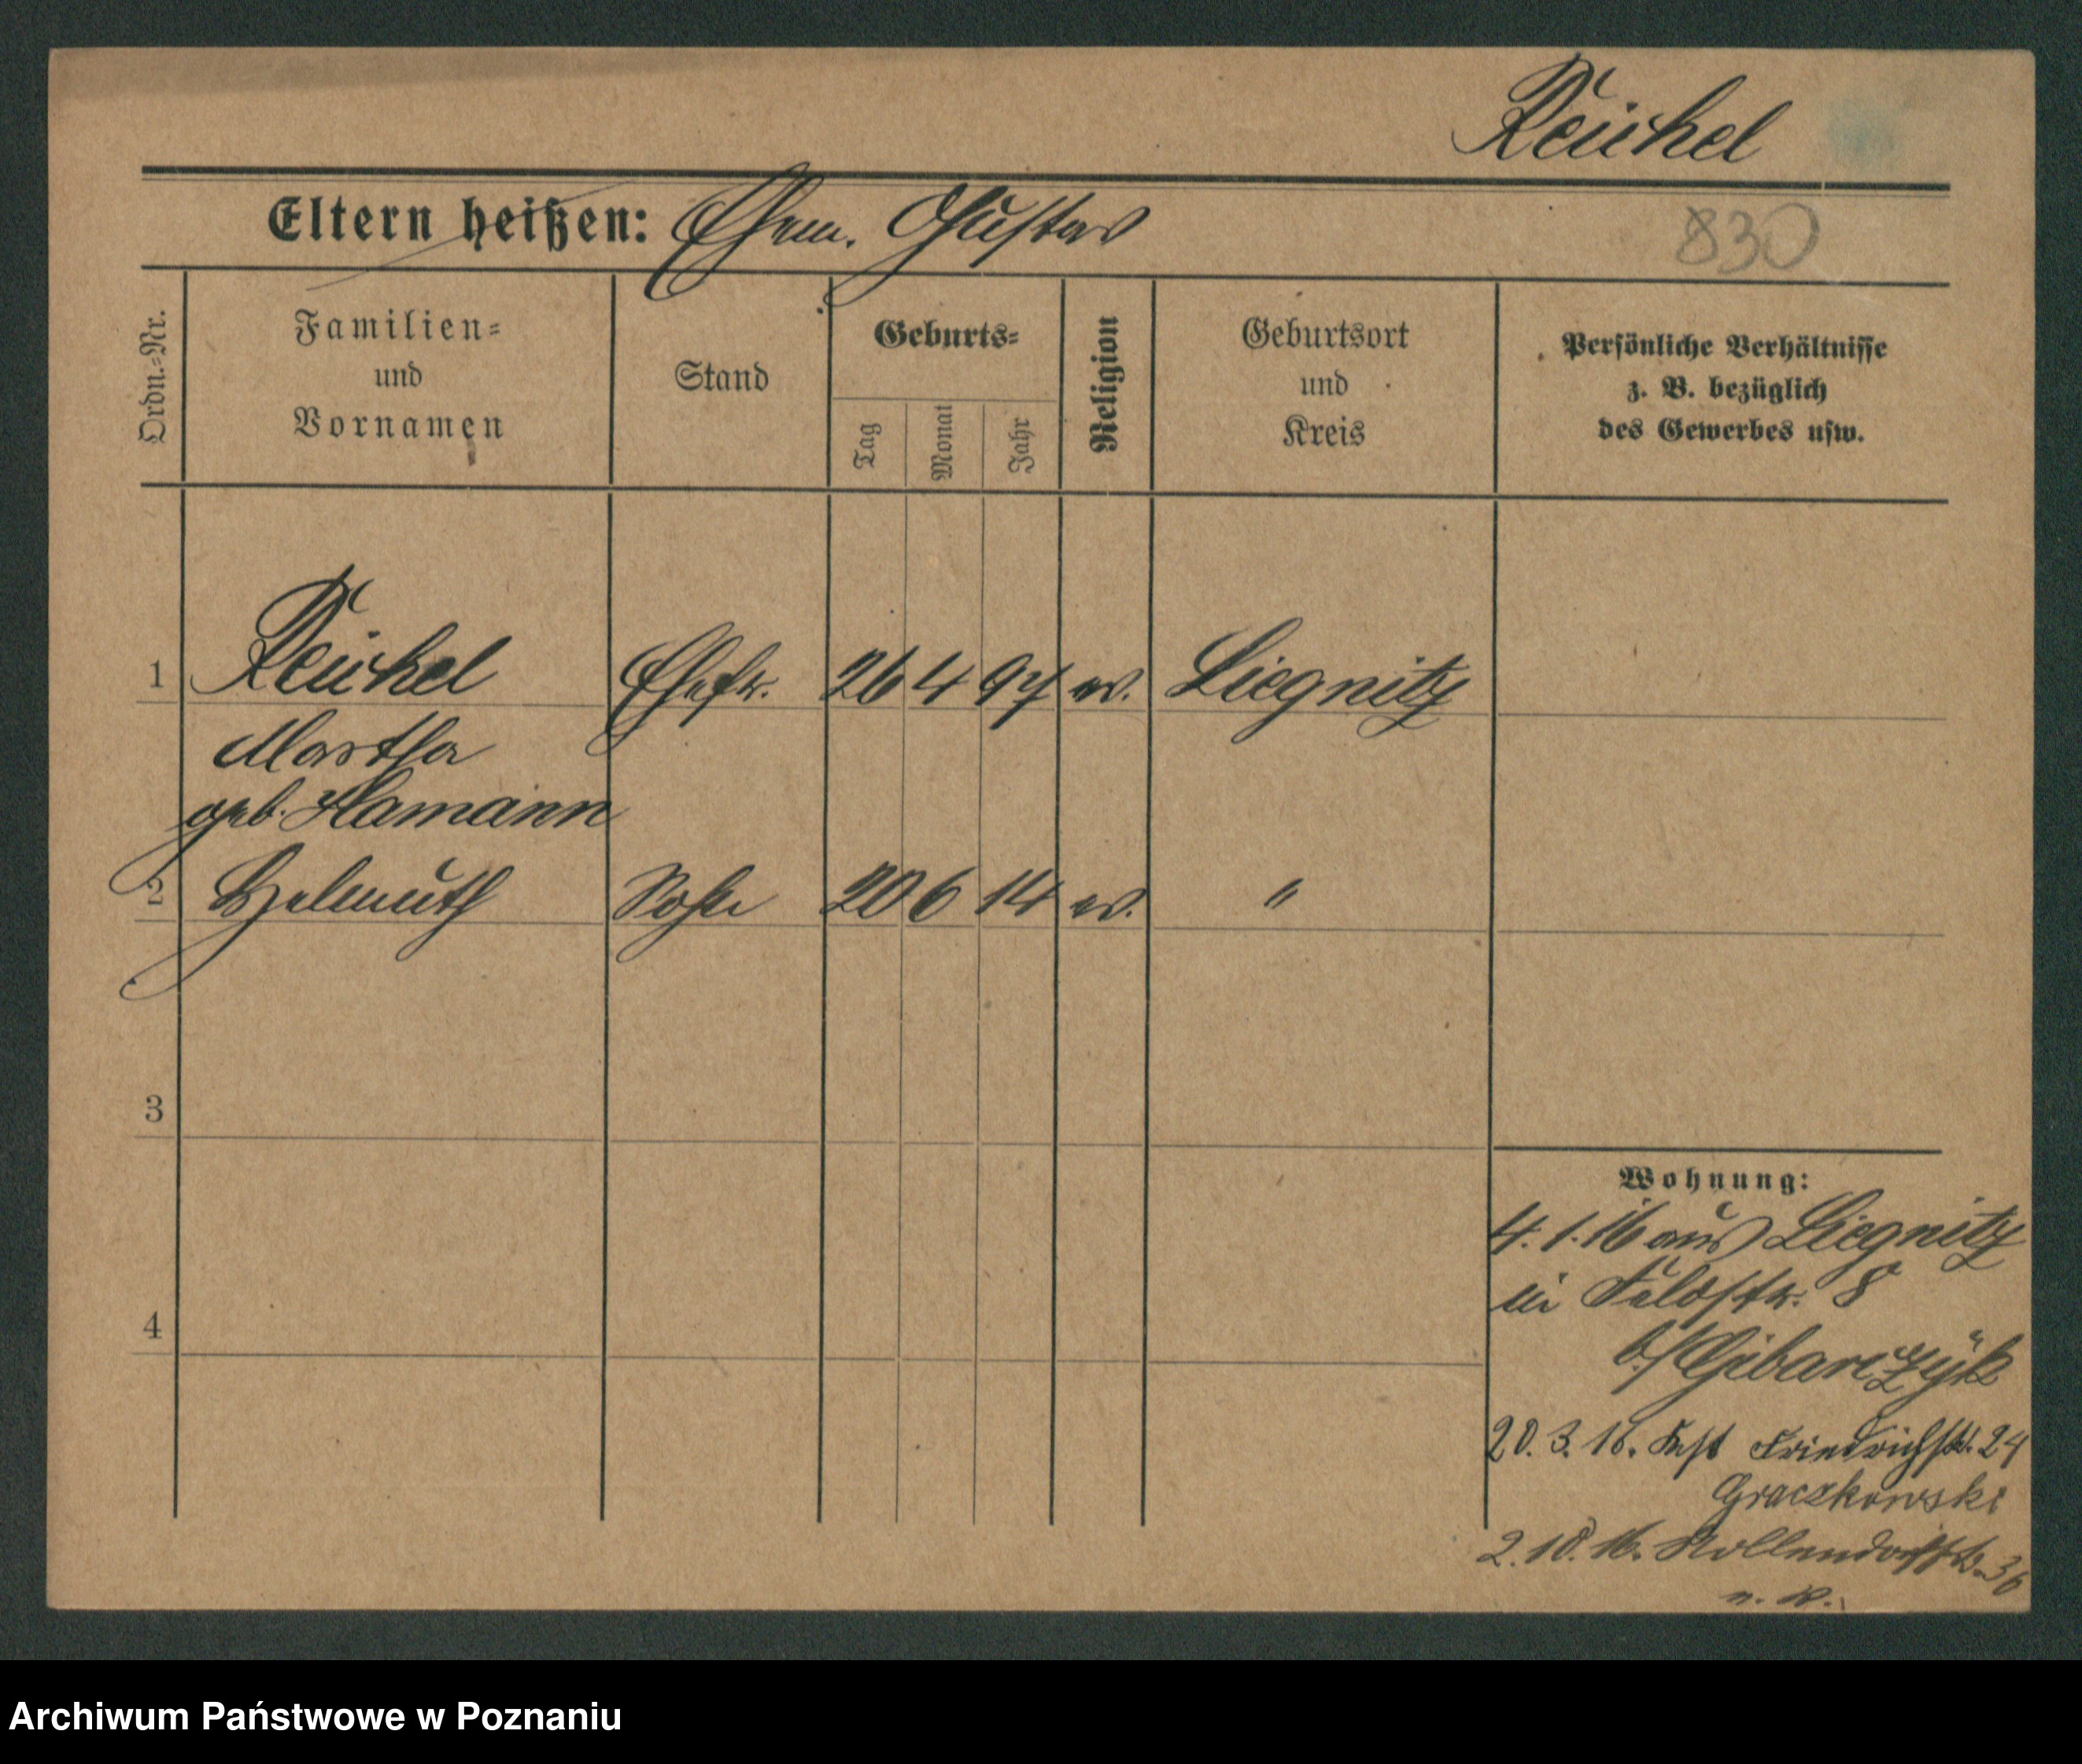 Reichel
Eltern heißen: Ehem. Gustav
830
Ordn.-Nr.
Familien-
und
Vornamen
Stand
Geburts-
Tag
Monat
Jahr
Religion
Geburtsort
und
Kreis
Persönliche Verhältnisse
z. B. bezüglich
des Gewerbes usw.
1 Reichel Ehefr. 26 4 94 ev. Liegnitz
Martha
geb. Hamann
2 Helmuth Sohn 20 6 14 ev. "
3
4
Wohnung:
4. 1. 16 aus Liegnitz
in Feldstr. 8
b/Gibarczyk
20. 3. 16. Friedrichstr. 24
Graczkowski
2. 10. 16. Nollendorfstr. 36
n. W.
Archiwum Państwowe w Poznaniu